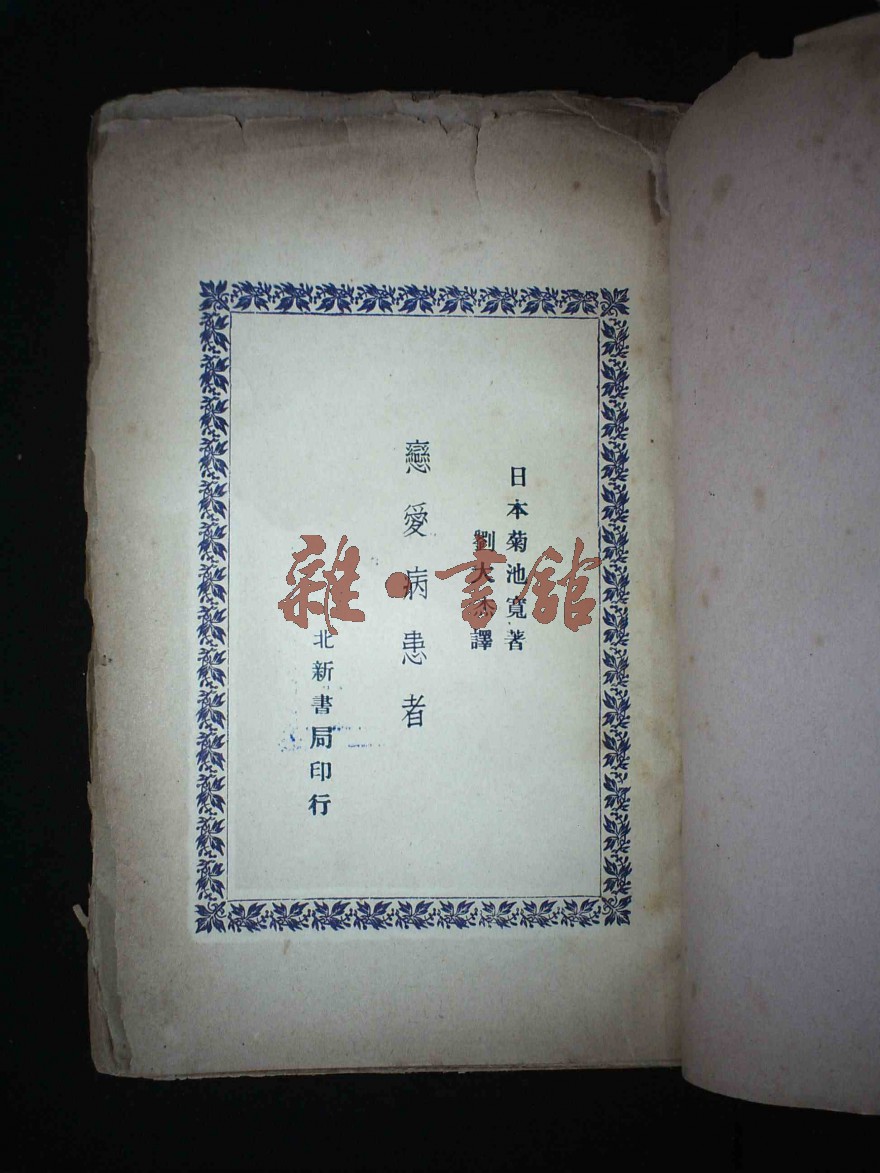 日本菊池寬著
劉大杰譯
戀愛病患者
北新書局印行
雜·書館